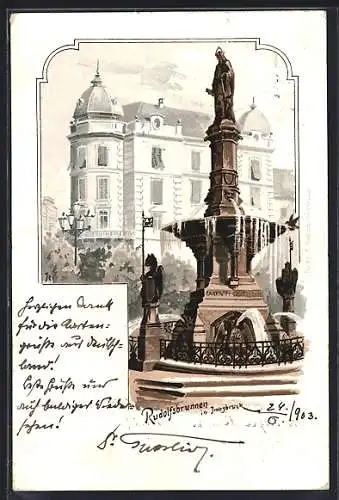 Herzlichen Dank
für die Karten-
grüße aus Deutsch-
land!
Beste Grüße und
auf baldiges Wieder-
sehen!
Dr.
Rudolfsbrunnen
in Innsbruck
24./
6. 1903.